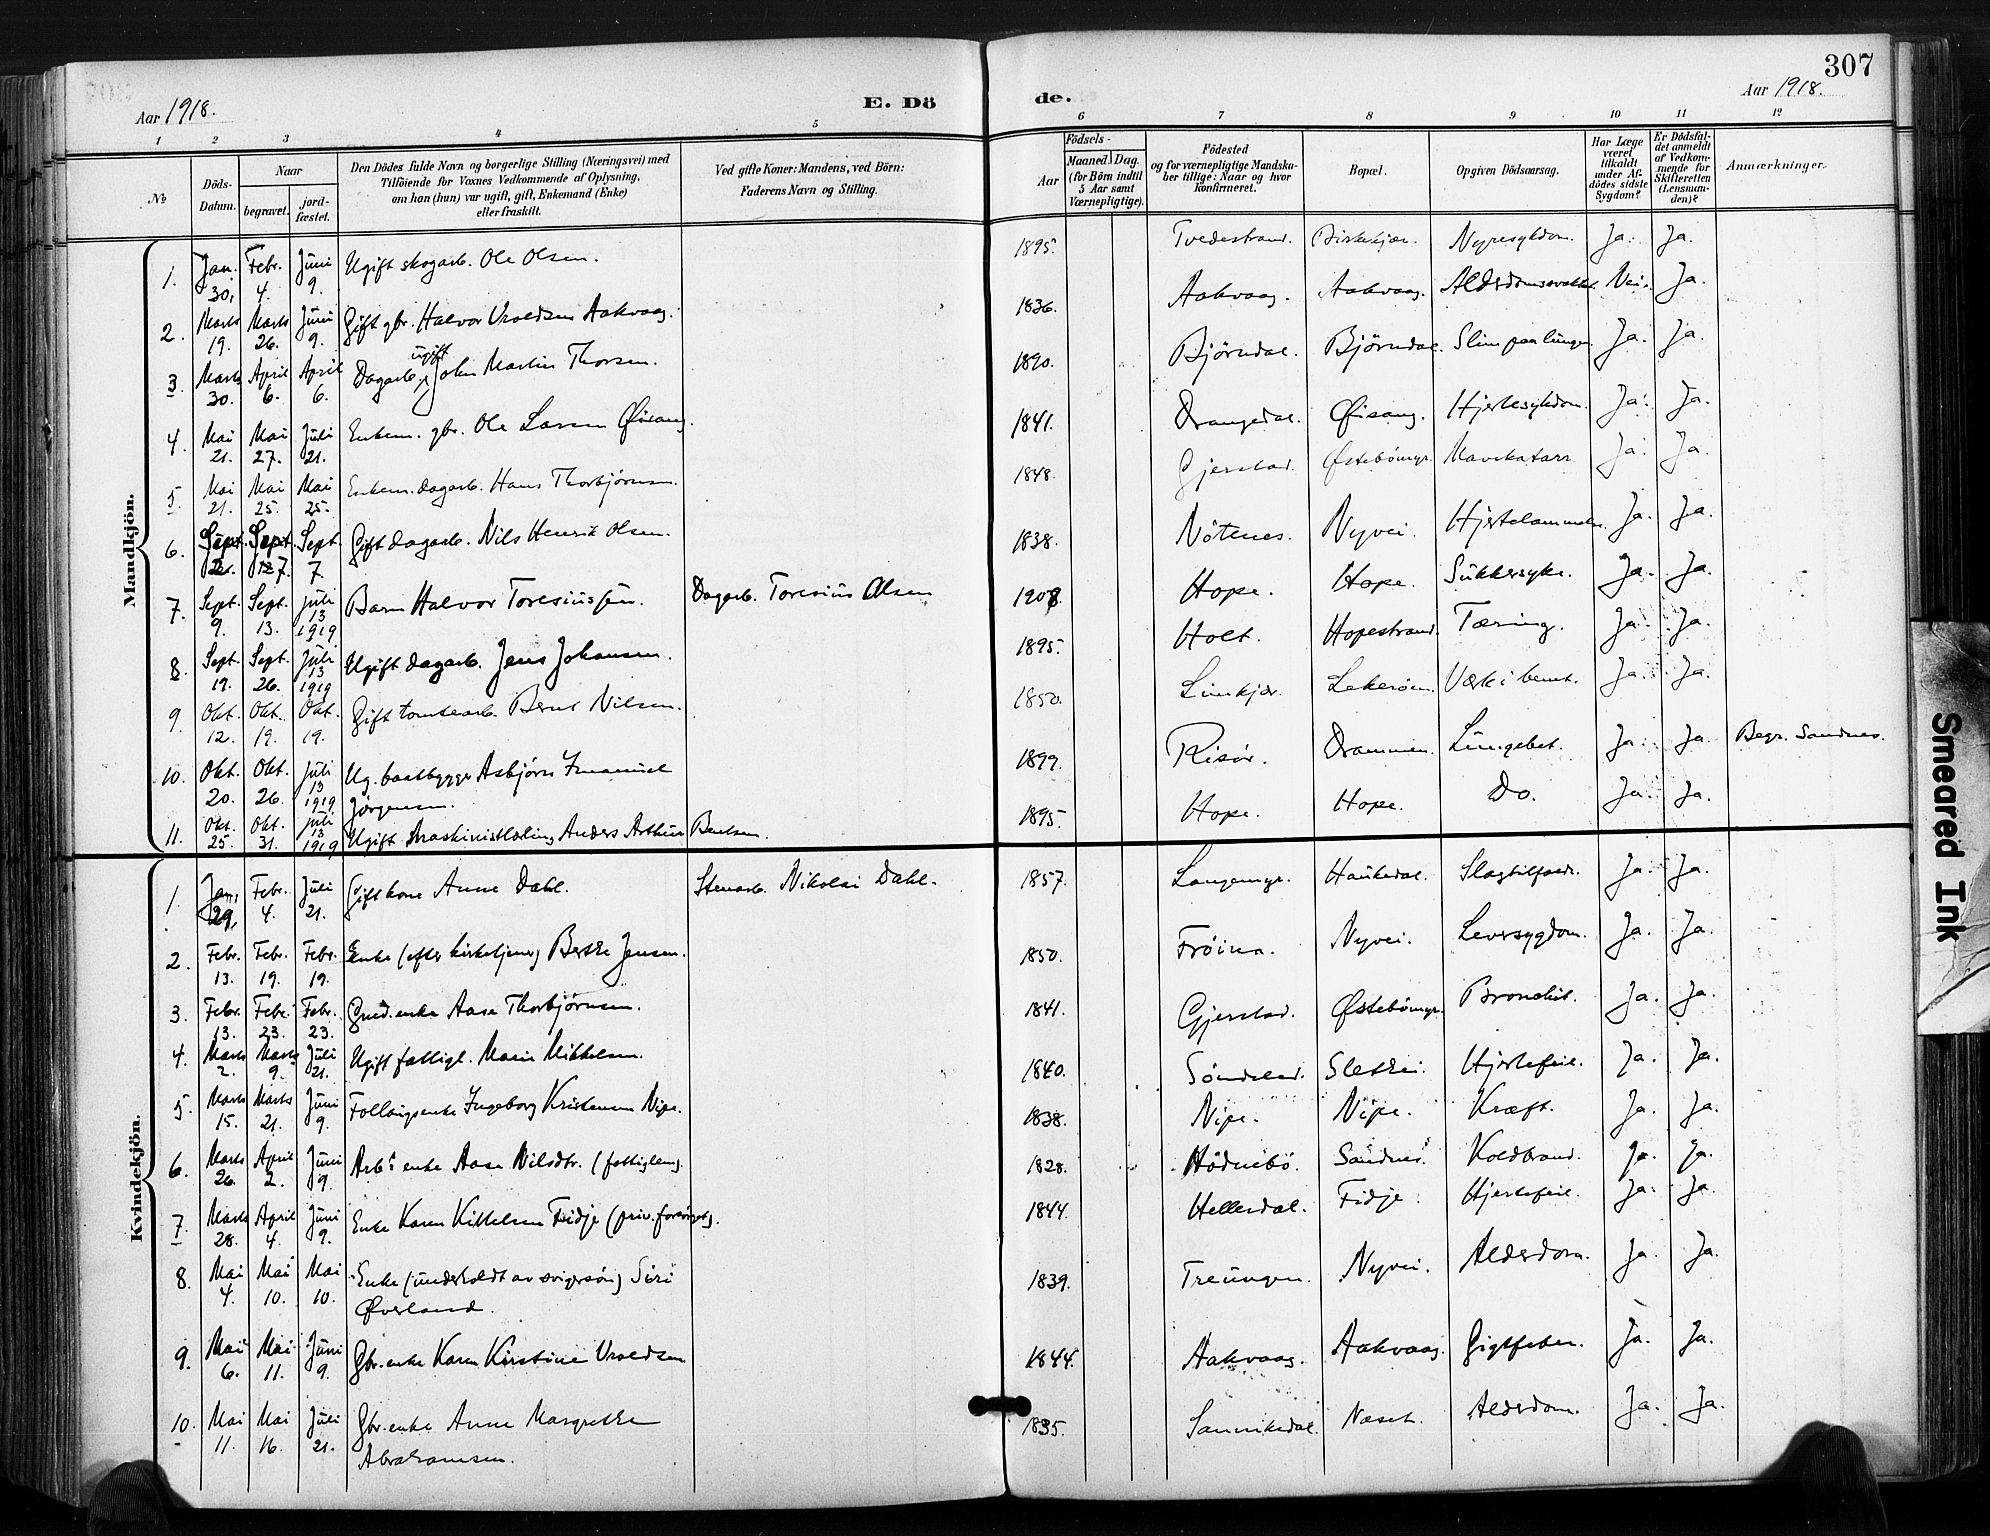 307
Aar 1918.
E. Dö de.
Aar 1918.
1 2 3 4 5 6 7 8 9 10 11 12
No
Döds-Datum.
Naar
begravet.
jord-fæstet.
Den Dödes fulde Navn og borgerlige Stilling (Næringsvei) med
Tilföiende for Voxnes Vedkommende af Oplysning,
om han (hun) var ugift, gift, Enkemand (Enke)
eller fraskilt.
Ved gifte Koner: Mandens, ved Börn:
Faderens Navn og Stilling.
Födsels-
Aar
Maaned. Dag.
(for Börn indtil
5 Aar samt
Værnepligtige).
Födested
og for værnepligtige Mandska-
ber tillige: Naar og hvor
konfirmeret.
Bopæl.
Opgiven Dödsaarsag.
Har Læge
været
tilkaldt
under Af-
dödes sidste
Sygdom?
Er Dödsfal-
det anmeldt
af Vedkom-
mende for
Skifteretten
(Lensman-
den)?
Anmærkninger.
Mandkjön.
1. Jan. 30. Febr. 4. Juni 9. Ugift skogarb. Ole Olsen. 1895. Tvedestrand. Birkekjær. Nyresykdom. Ja. Ja.
2. Marts 19. Marts 26. Juni 9. Gift gbr. Halvor Uroldsen Aakvaag. 1836. Aakvaag. Aakvaag. Nei. Ja.
3. Marts 30. April 6. April 6. Dagarb. ugift John Martin Thorsen. 1890. Björndal. Björndal. Slim paa lungen Ja. Ja.
4. Mai 21. Mai 27. Juli 21. Enkem. gbr. Ole Larsen Øisang. 1841. Drangedal. Øisang. Hjertesykdom. Ja. Ja.
5. Mai 21. Mai 25. Mai 25. Enkem. dagarb. Hans Thorbjörnsen. 1848. Gjerstad. Østebömyr. Mavekatarr Ja. Ja.
6. Sept. 2. Sept. 7. Sept. 7. Gift dagarb. Nils Henrik Olsen. 1838. Nötenes. Nyvei. Hjertelammelse. Ja. Ja.
7. Sept. 9. Sept. 13. Juli 13 1919 Barn Halvor Toresiussen. Dagarb. Toresius Olsen Hope. Hope. Sukkersyke. Ja. Ja.
8. Sept. 19. Sept. 26. Juli 13 1919 Ugift dagarb. Jens Johansen. 1895. Holt. Hopestrand. Tæring. Ja. Ja.
9 Okt. 12. Okt. 19. Okt. 19. Gift tomtearb. Bernt Nilsen. 1850. Limkjær. Værk i benet. Ja. Ja.
10. Okt. 20. Okt. 26. Juli 13 1919 Ug. baatbygger Asbjörn Imanuel
Jörgensen. 1899. Risör. Drammen. Lungebet. Ja. Ja. Begr. Sandnes.
11. Okt. 25. Okt. 31. Juli 13 1919 Ugift Maskinistlærling Anders Arthur Bentsen. 1895. Hope. Hope. Do. Ja. Ja.
Kvindekjön.
1. Jan. 29. Febr. 4. Juli 21. Gift kone Anne Dahl. Stenarb. Nikolai Dahl. 1857. Langemyr. Haukedal. Slagtilfælde. Ja. Ja.
2. Febr. 13. Febr. 19. Febr. 19. Enke (efter kirketjener) Berthe Jensen. 1850. Fröina. Nyvei. Leversygdom. Ja. Ja.
3. Febr. 13. Febr. 23. Febr. 23. Gmd. enke Aase Thorbjörnsen. 1841. Gjerstad. Østebömyr. Bronchit. Ja. Ja.
4. Marts 2. Marts 9. Juli 21. Ugift fattigl. Maren Mikkelsen. 1840. Söndeled. Sletthei. Hjertefeil. Ja. Ja.
5. Marts 15. Marts 21. Juni 9. Follaugsenke Ingeborg Kristensen Nipe. 1838. Nipe. Nipe. Kræft. Ja. Ja.
6. Marts 26. April 2. Juni 9. Arb.s enke Aase Nilsdtr. (fattiglem). 1828. Hödnebö. Sandnes. Koldbrand. Ja. Ja.
7. Marts 28. April 4. Juni 9. Enke Karen Kittelsen Fidje (priv. forsörget). 1844. Hellerdal. Fidje. Hjertefeil. Ja. Ja.
8. Mai 4. Mai 10. Mai 10. Enke (underholdt av svigersön) Siri
Øverland. 1839. Treungen. Nyvei. Alderdom. Ja. Ja.
9. Mai 6. Mai 11. Juni 9. Gbr. enke Karen Kirstine Uroldsen 1844. Aakvaag. Aakvaag. Gigtfeber. Ja. Ja.
10. Mai 11. Mai 16. Juli 21. Gbr. enke Anne Margrethe
Abrahamsen. 1835. Sannikedal. Næset. Alderdom. Ja. Ja.
Smeared Ink